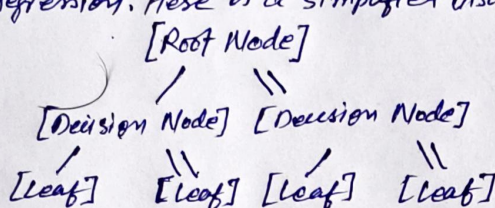 egression. Here is a simplified
[Root Node]
[Decision Node] [Decision Node]
[Leaf] [Leaf] [Leaf] [Leaf]